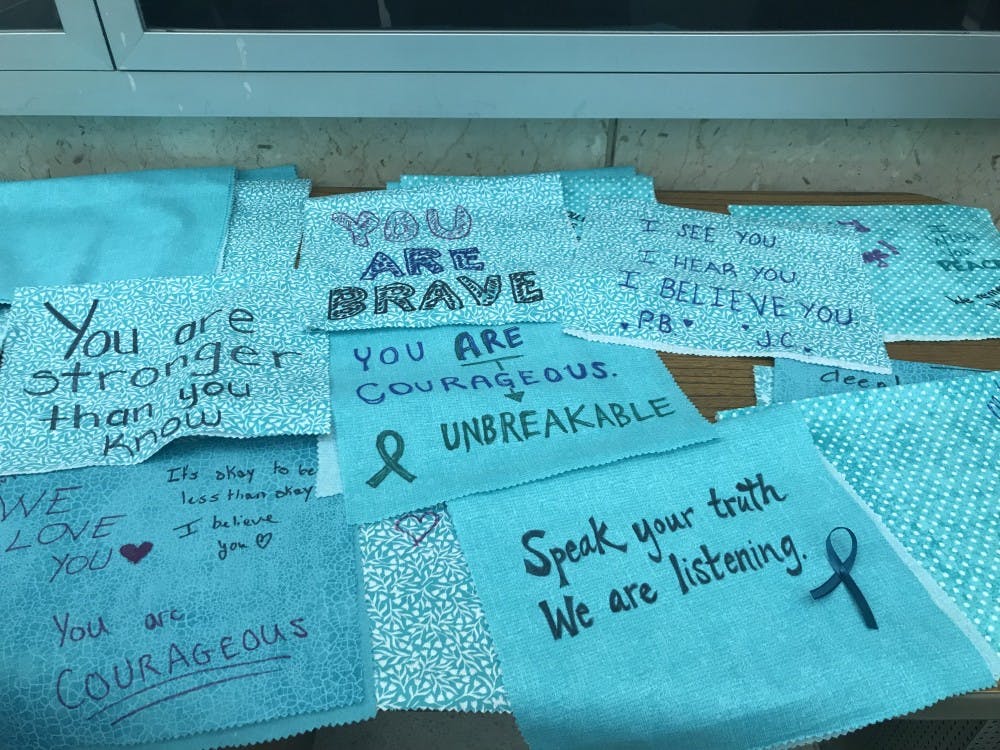 YOU
ARE
BRAVE
I SEE YOU.
I HEAR YOU.
I BELIEVE YOU.
PB
J.C.
PEACE
You are
stronger
than you
know
YOU ARE
COURAGEOUS.
UNBREAKABLE
deep
WE
LOVE
YOU
It's okay to be
less than okay
I believe
you
You are
COURAGEOUS
Speak your truth
We are listening.